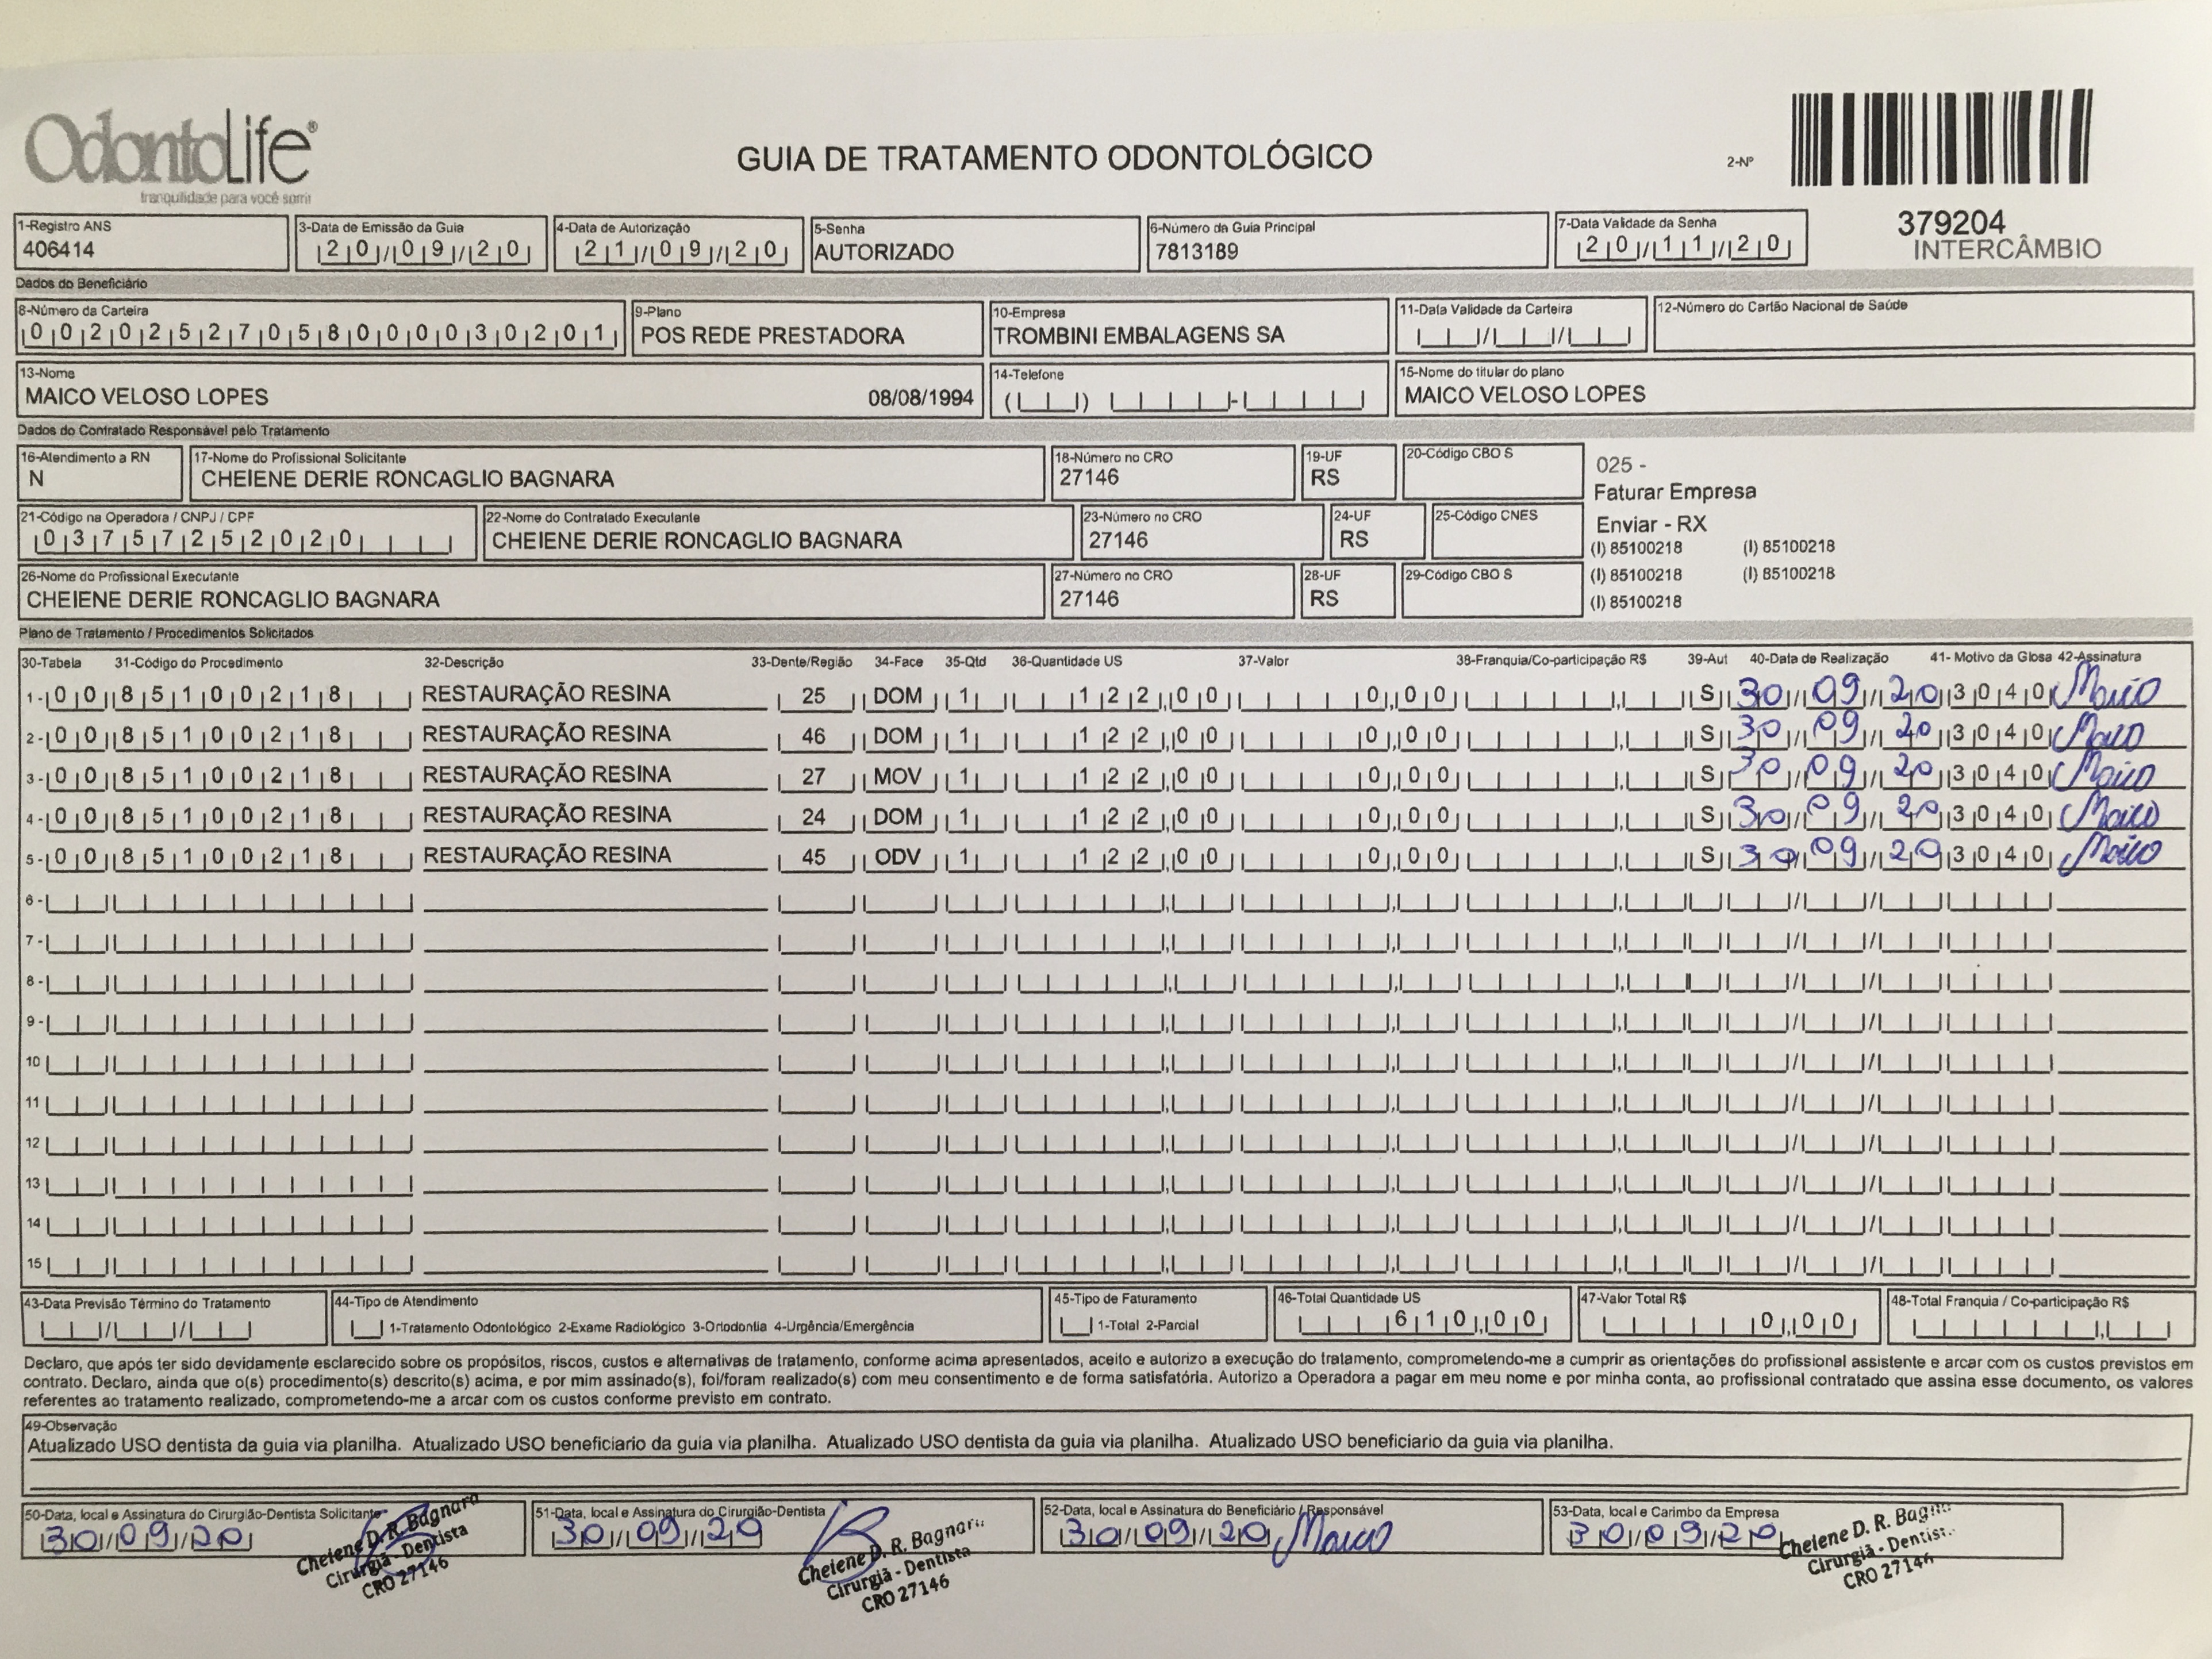 OdontoLife®
tranquilidade para você sorrir
GUIA DE TRATAMENTO ODONTOLÓGICO
2-Nº
379204
INTERCÂMBIO
1-Registro ANS
406414
3-Data de Emissão da Guia
20/09/20
4-Data de Autorização
21/09/20
5-Senha
AUTORIZADO
6-Número da Guia Principal
7813189
7-Data Validade da Senha
20/11/20
Dados do Beneficiário
8-Número da Carteira
00202527058000030201
9-Plano
POS REDE PRESTADORA
10-Empresa
TROMBINI EMBALAGENS SA
11-Data Validade da Carteira
12-Número do Cartão Nacional de Saúde
13-Nome
MAICO VELOSO LOPES 08/08/1994
14-Telefone
15-Nome do titular do plano
MAICO VELOSO LOPES
Dados do Contratado Responsável pelo Tratamento
16-Atendimento a RN
N
17-Nome do Profissional Solicitante
CHEIENE DERIE RONCAGLIO BAGNARA
18-Número no CRO
27146
19-UF
RS
20-Código CBO S
025 -
Faturar Empresa
Enviar - RX
(I) 85100218 (I) 85100218
(I) 85100218 (I) 85100218
(I) 85100218
21-Código na Operadora / CNPJ / CPF
03757252020
22-Nome do Contratado Executante
CHEIENE DERIE RONCAGLIO BAGNARA
23-Número no CRO
27146
24-UF
RS
25-Código CNES
26-Nome do Profissional Executante
CHEIENE DERIE RONCAGLIO BAGNARA
27-Número no CRO
27146
28-UF
RS
29-Código CBO S
Plano de Tratamento / Procedimentos Solicitados
30-Tabela 31-Código do Procedimento 32-Descrição 33-Dente/Região 34-Face 35-Qtd 36-Quantidade US 37-Valor 38-Franquia/Co-participação R$ 39-Aut 40-Data de Realização 41- Motivo da Glosa 42-Assinatura
1- 00 85100218 RESTAURAÇÃO RESINA 25 DOM 1 122,00 0,00 S 30/09/20 3040 Maico
2- 00 85100218 RESTAURAÇÃO RESINA 46 DOM 1 122,00 0,00 S 30/09/20 3040 Maico
3- 00 85100218 RESTAURAÇÃO RESINA 27 MOV 1 122,00 0,00 S 30/09/20 3040 Maico
4- 00 85100218 RESTAURAÇÃO RESINA 24 DOM 1 122,00 0,00 S 30/09/20 3040 Maico
5- 00 85100218 RESTAURAÇÃO RESINA 45 ODV 1 122,00 0,00 S 30/09/20 3040 Maico
6-
7-
8-
9-
10
11
12
13
14
15
43-Data Previsão Término do Tratamento
44-Tipo de Atendimento
1-Tratamento Odontológico 2-Exame Radiológico 3-Ortodontia 4-Urgência/Emergência
45-Tipo de Faturamento
1-Total 2-Parcial
46-Total Quantidade US
610,00
47-Valor Total R$
0,00
48-Total Franquia / Co-participação R$
Declaro, que após ter sido devidamente esclarecido sobre os propósitos, riscos, custos e alternativas de tratamento, conforme acima apresentados, aceito e autorizo a execução do tratamento, comprometendo-me a cumprir as orientações do profissional assistente e arcar com os custos previstos em
contrato. Declaro, ainda que o(s) procedimento(s) descrito(s) acima, e por mim assinado(s), foi/foram realizado(s) com meu consentimento e de forma satisfatória. Autorizo a Operadora a pagar em meu nome e por minha conta, ao profissional contratado que assina esse documento, os valores
referentes ao tratamento realizado, comprometendo-me a arcar com os custos conforme previsto em contrato.
49-Observação
Atualizado USO dentista da guia via planilha. Atualizado USO beneficiario da guia via planilha. Atualizado USO dentista da guia via planilha. Atualizado USO beneficiario da guia via planilha.
50-Data, local e Assinatura do Cirurgião-Dentista Solicitante
30/09/20
Cheiene D. R. Bagnara
Cirurgiã - Dentista
CRO 27146
51-Data, local e Assinatura do Cirurgião-Dentista
30/09/20
Cheiene D. R. Bagnara
Cirurgiã - Dentista
CRO 27146
52-Data, local e Assinatura do Beneficiário / Responsável
30/09/20 Maico
53-Data, local e Carimbo da Empresa
30/09/20
Cheiene D. R. Bag
Cirurgiã - Dentist
CRO 27146